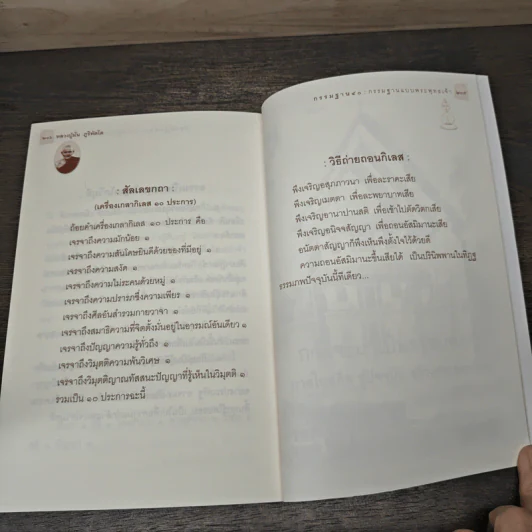 หลวงปู่มั่น ภูริทัตโต
: สัลเลขกถา :
(เครื่องเกลากิเลส ๑๐ ประการ)
ถ้อยคำเครื่องเกลากิเลส ๑๐ ประการ คือ
เจรจาถึงความมักน้อย ๑
เจรจาถึงความสันโดษยินดีด้วยของที่มีอยู่ ๑
เจรจาถึงความสงัด ๑
เจรจาถึงความไม่ระคนด้วยหมู่ ๑
เจรจาถึงความปรารภซึ่งความเพียร ๑
เจรจาถึงศีลอันสำรวมกายวาจา ๑
เจรจาถึงสมาธิความที่จิตตั้งมั่นอยู่ในอารมณ์อันเดียว ๑
เจรจาถึงปัญญาความรู้ทั่วถึง ๑
เจรจาถึงวิมุตติความพ้นวิเศษ ๑
เจรจาถึงวิมุตติญาณทัสสนะปัญญาที่รู้เห็นในวิมุตติ ๑
รวมเป็น ๑๐ ประการฉะนี้
กรรมฐาน๔๐ : กรรมฐานแบบพระพุทธเจ้า
: วิธีถ่ายถอนกิเลส :
พึงเจริญอสุภภาวนา เพื่อละราคะเสีย
พึงเจริญเมตตา เพื่อละพยาบาทเสีย
พึงเจริญอานาปานสติ เพื่อเข้าไปตัดวิตกเสีย
พึงเจริญอนิจจสัญญา เพื่อถอนอัสมิมานะเสีย
อนัตตาสัญญาก็พึงเห็นพึงตั้งใจไว้ด้วยดี
ความถอนอัสมิมานะขึ้นเสียได้ เป็นปรินิพพานในทิฏฐ
ธรรมภพปัจจุบันนี้ทีเดียว...